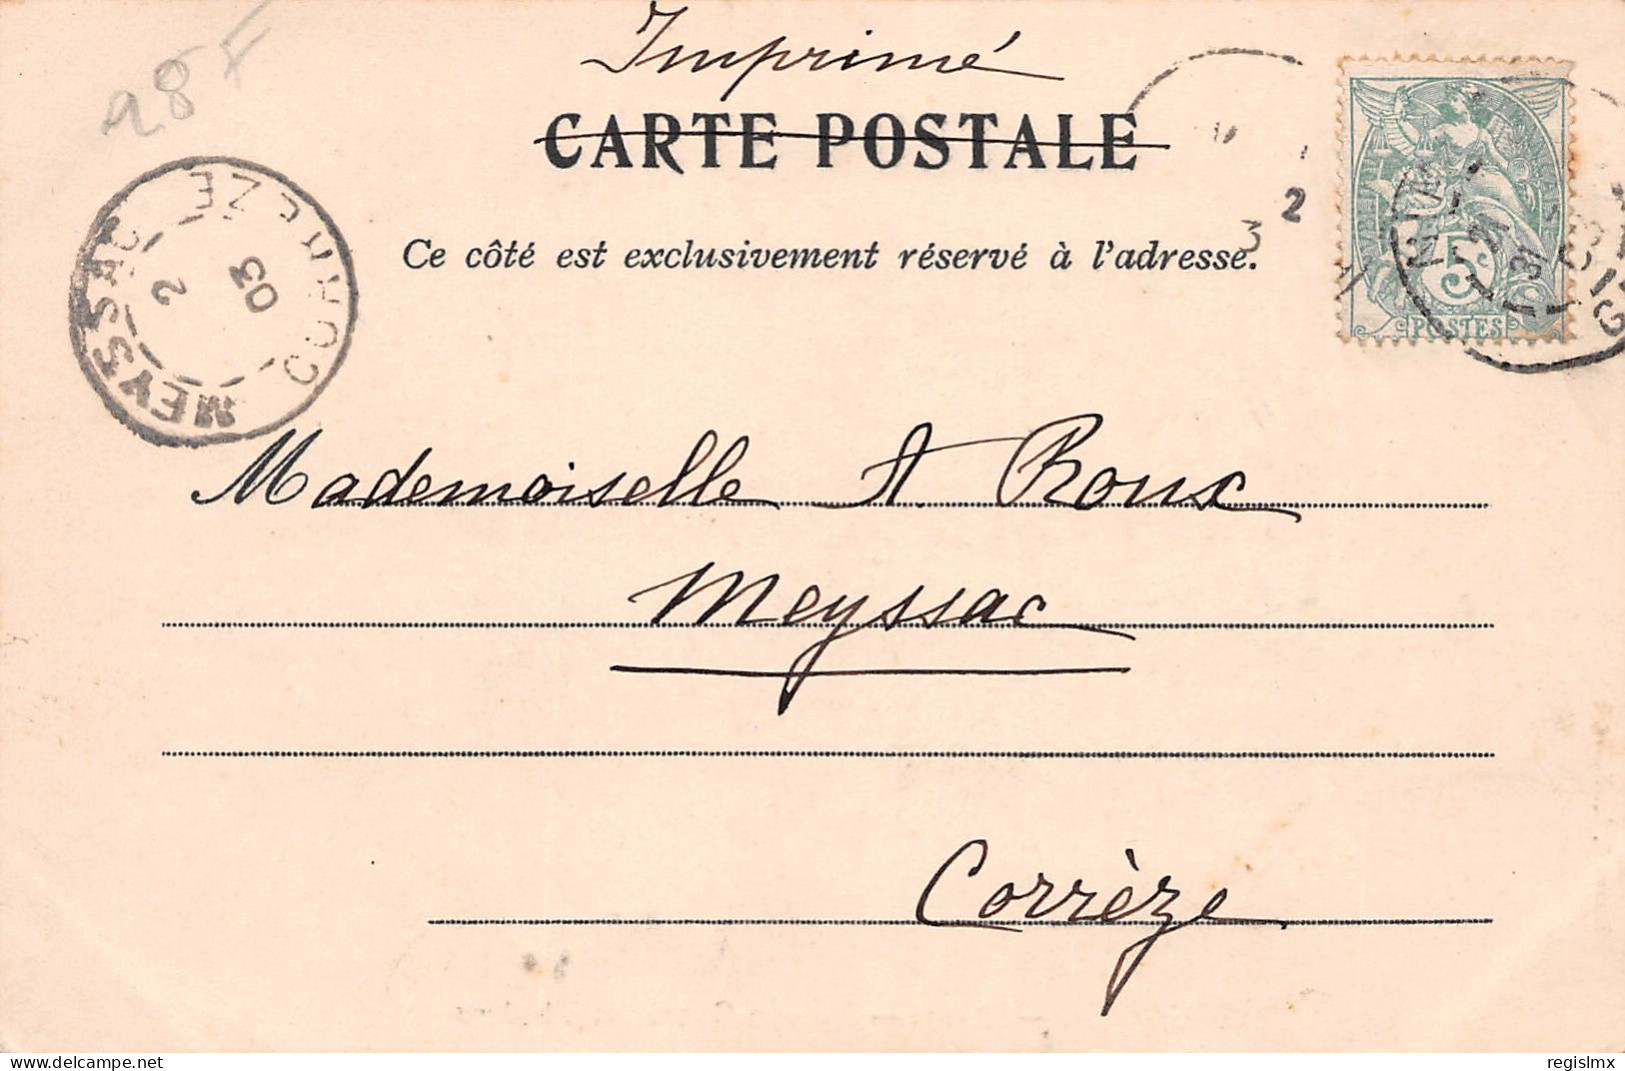 Imprimé
98 F
CARTE POSTALE
Ce côté est exclusivement réservé à l'adresse.
MEYSSAC CORRÈZE
2
03
3 2
5
POSTES
Mademoiselle A Roux
Meyssac
Corrèze
delcampe.net
regislmx